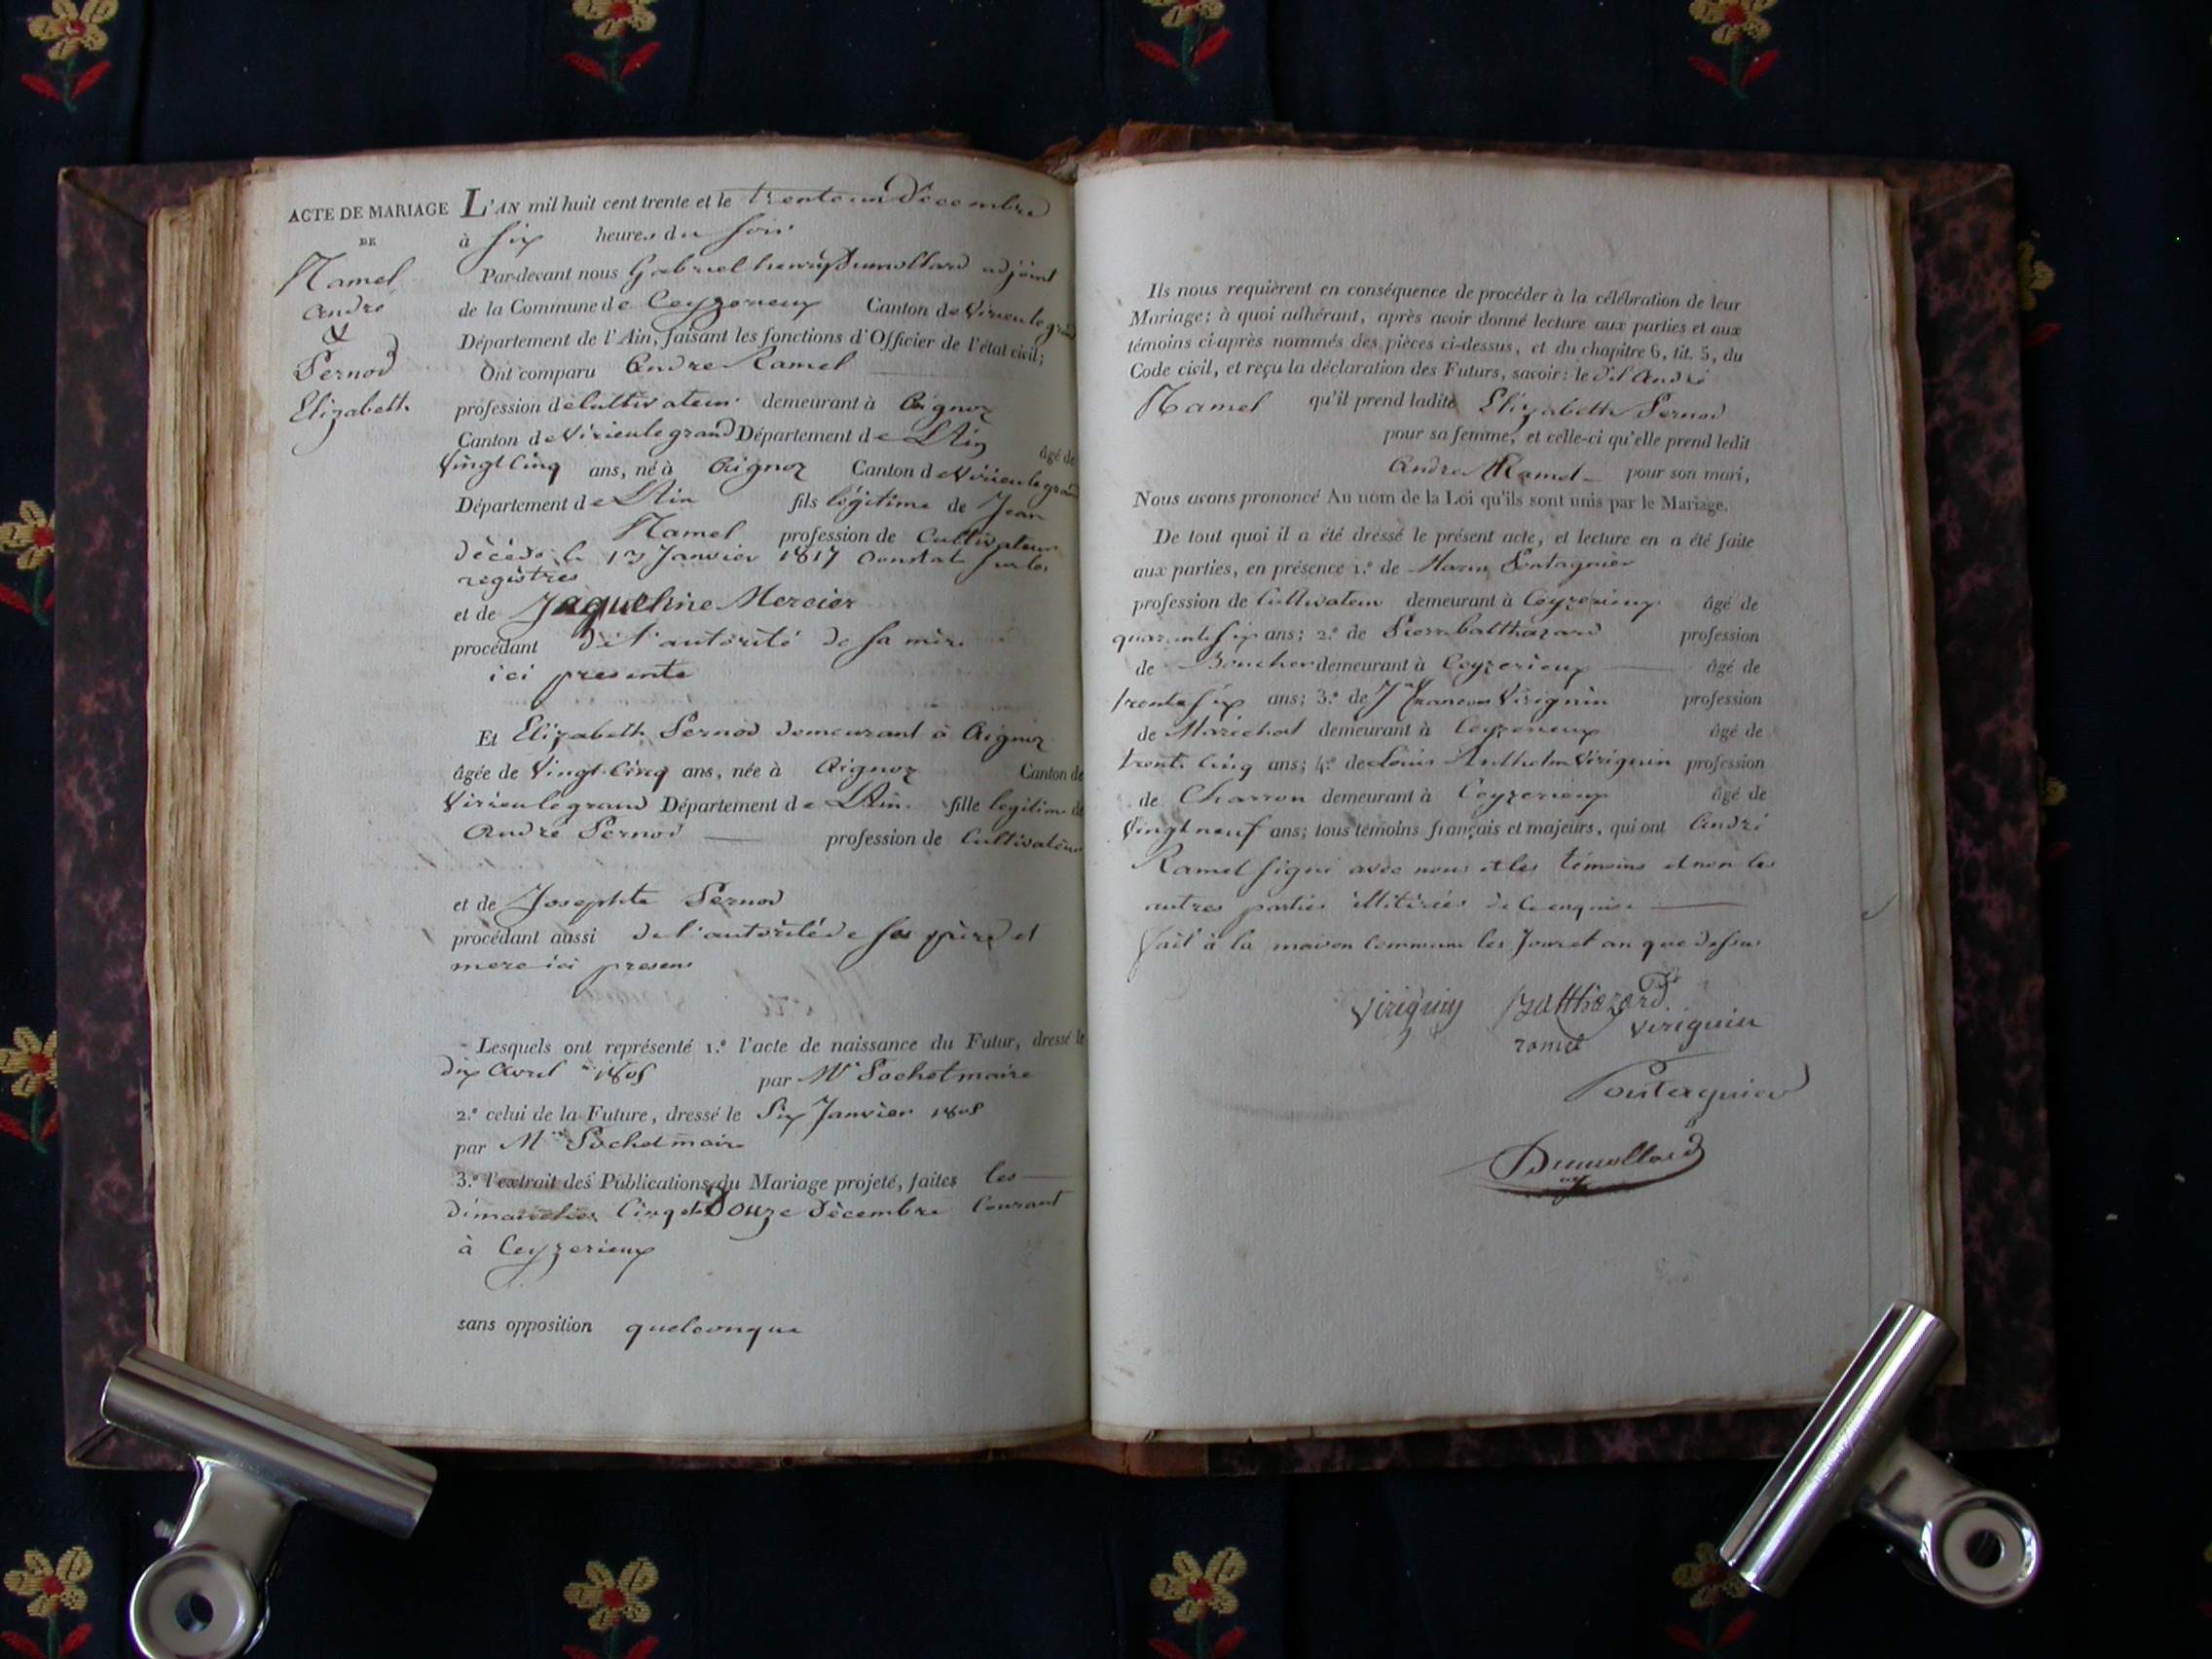 ACTE DE MARIAGE
DE
Ramel
André
&
Pernod
Elizabeth
L'AN mil huit cent trente et le trente un Décembre
à six heures du soir
Par-devant nous Gabriel henry Dumollard adjoint
de la Commune de Ceyzerieux Canton de Virieu le grand
Département de l'Ain, faisant les fonctions d'Officier de l'état civil;
Ont comparu André Ramel
profession de Cultivateur demeurant à Aignoz
Canton de Virieu le grand Département de L'Ain âgé de
Vingt Cinq ans, né à Aignoz Canton de Virieu le grand
Département de L'Ain fils légitime de Jean
Ramel profession de Cultivateur
décédé le Janvier 1817 Constaté sur les
registres
et de Jaqueline Mercier
procédant de l'autorité de sa mère
ici presente
Et Elizabeth Pernod demeurant à Aignoz
âgée de Vingt Cinq ans, née à Aignoz Canton de
Virieu le grand Département de L'Ain fille legitime de
André Pernod profession de Cultivateur
et de Josephte Pernod
procédant aussi de l'autorité de ses père et
mere ici presens
Lesquels ont représenté 1.º l'acte de naissance du Futur, dressé le
dix Avril par Mr Pochet maire
2.º celui de la Future, dressé le Six Janvier
par Mr Pochet maire
3.º l'extrait des Publications du Mariage projeté, faites les
dimanches Cinq et Douze Décembre Courant
à Ceyzerieux
sans opposition quelconque
Ils nous requièrent en conséquence de procéder à la célébration de leur
Mariage; à quoi adhérant, après avoir donné lecture aux parties et aux
témoins ci-après nommés des pièces ci-dessus, et du chapitre 6, tit. 5, du
Code civil, et reçu la déclaration des Futurs, savoir: le dit André
Ramel qu'il prend ladite Elizabeth Pernod
pour sa femme, et celle-ci qu'elle prend ledit
André Ramel pour son mari,
Nous avons prononcé Au nom de la Loi qu'ils sont unis par le Mariage.
De tout quoi il a été dressé le présent acte, et lecture en a été faite
aux parties, en présence 1.º de Marin Pontagnier
profession de Cultivateur demeurant à Ceyzerieux âgé de
quarante six ans; 2.º de Pierre balthazard profession
de Boucher demeurant à Ceyzerieux âgé de
trente six ans; 3.º de Jn francois Viriguin profession
de Maréchal demeurant à Ceyzerieux âgé de
trente Cinq ans; 4.º de Louis Anthelm Viriguin profession
de Charron demeurant à Ceyzerieux âgé de
Vingt neuf ans; tous témoins français et majeurs, qui ont André
Ramel signé avec nous et les témoins et non les
autres parties illitérées de ce enquise
fait à la maison Commune les Jour et an que dessus
Viriguin Balthazard
Viriguin
ramel
Pontagnier
Dumollard